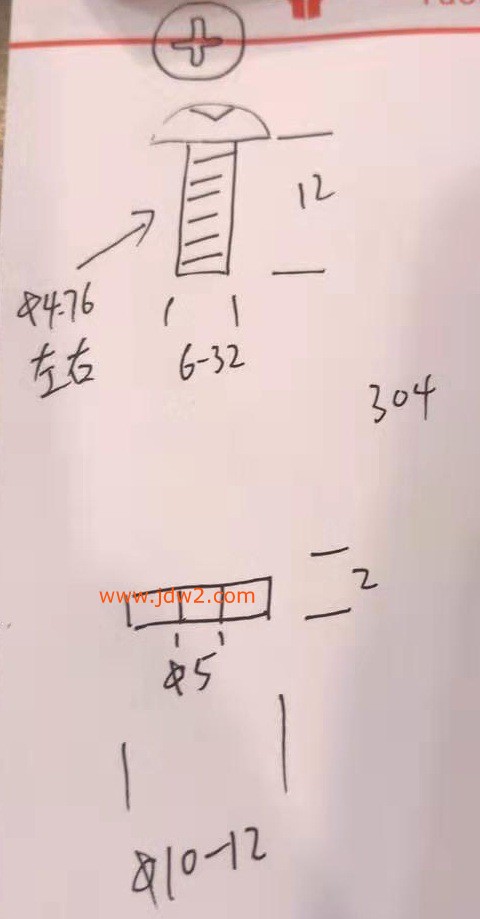 12
Φ4.76
左右
6-32
304
2
www.jdw2.com
Φ5
Φ10-12